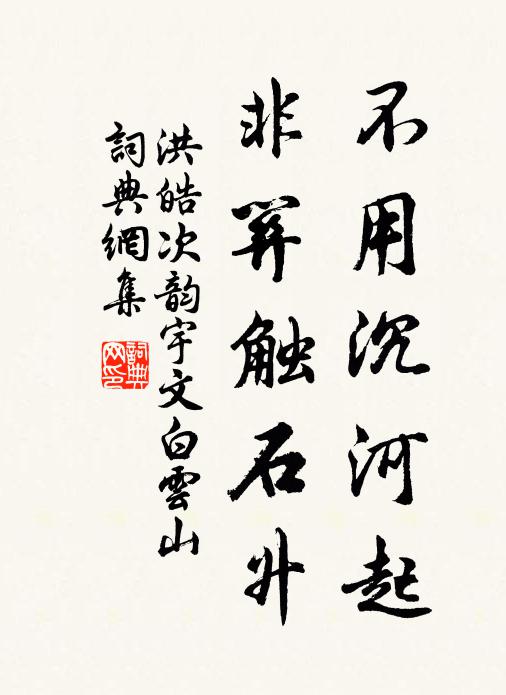 不用沉河起
非關触石升
洪皓次韵宇文白雲山
詞典網集
詞典
网印